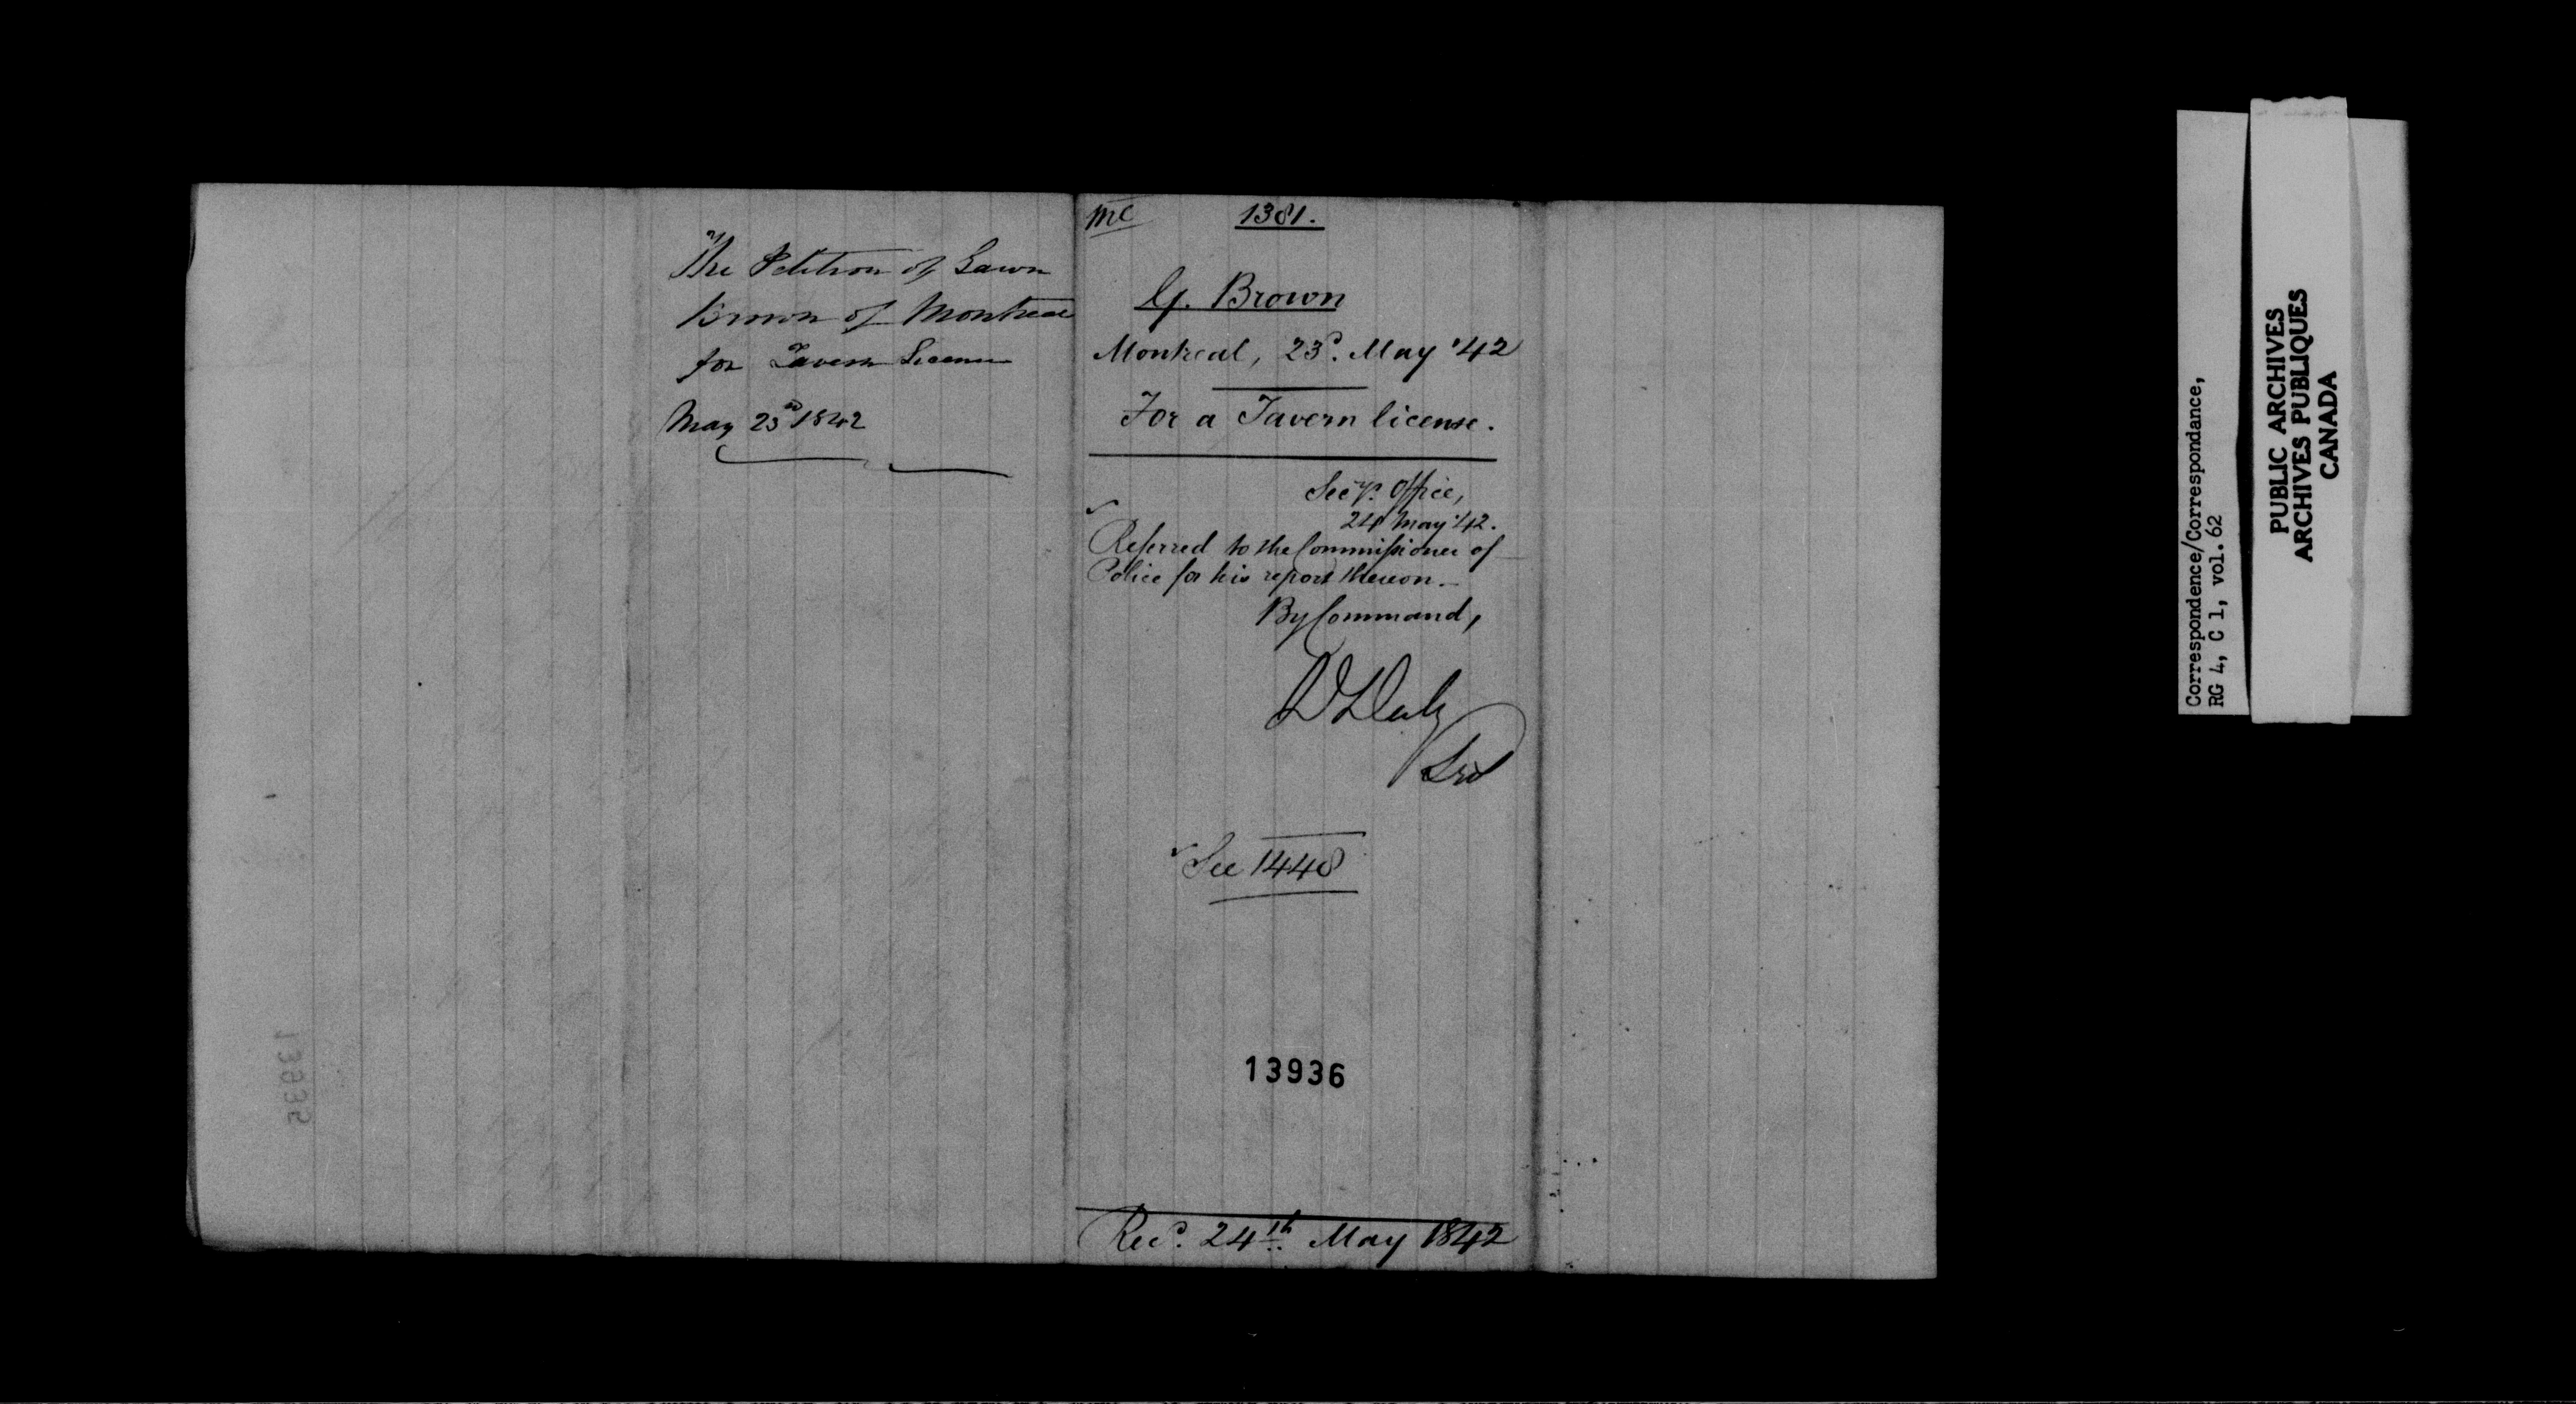 The Petition of Gawn
Brown of Montreal
for Tavern License
May 23d 1842
mc
1381.
G. Brown
Montreal, 23d. May '42
For a Tavern license.
Secy's. Office,
24 May '42.
Referred to the Commissioner of
Police for his report thereon.
By Command,
D Daly
Sec
See 1448
13936
Recd. 24th. May 1842
13935
Correspondence/Correspondance,
RG 4, C 1, vol. 62
PUBLIC ARCHIVES
ARCHIVES PUBLIQUES
CANADA